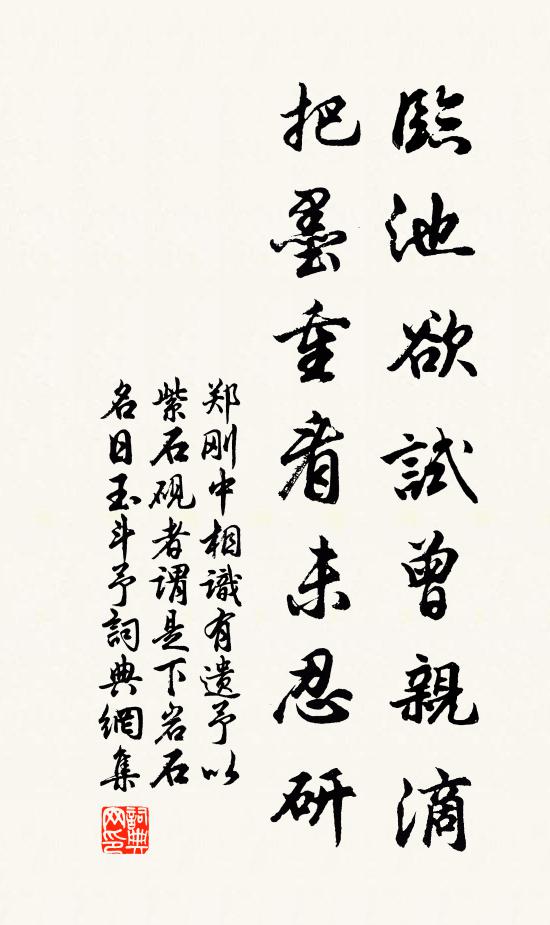 臨池欲試曾親滴
把墨重看未忍研
郑刚中相識有遺予以
紫石砚者謂是下岩石
名曰玉斗予詞典網集
詞典网印